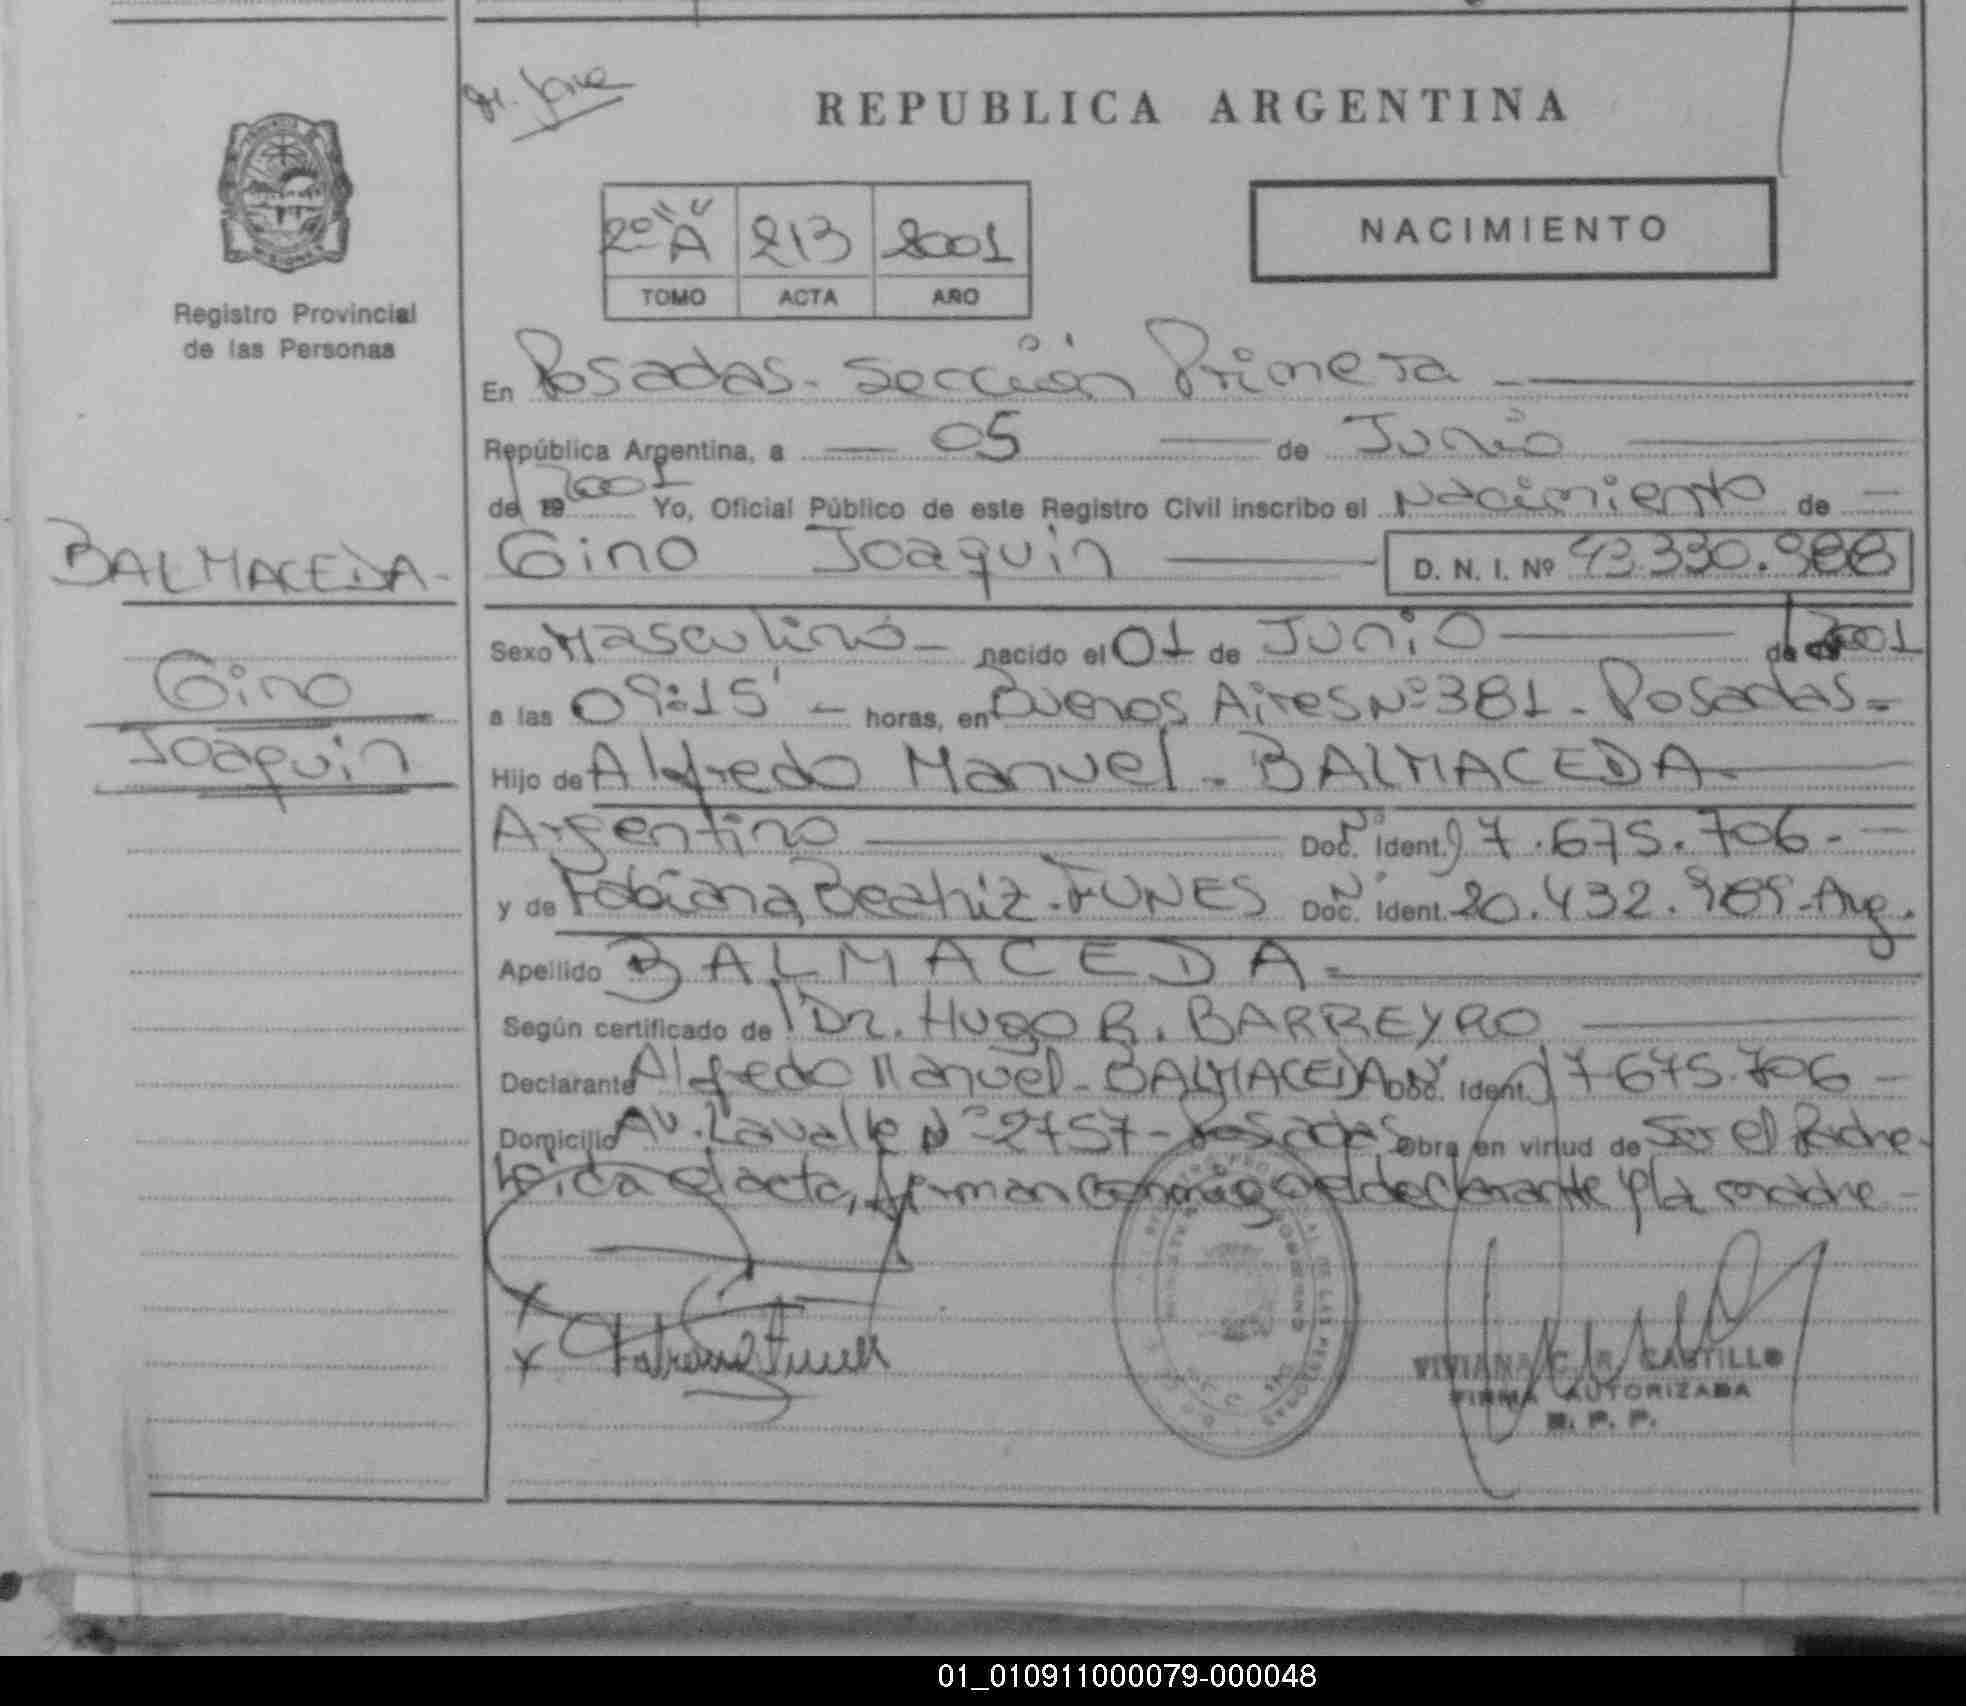 REPUBLICA ARGENTINA
2º "A" 213 2001
TOMO ACTA AÑO
NACIMIENTO
Registro Provincial
de las Personas
En Posadas - Sección Primera
República Argentina, a 05 de Junio
de 19 2001 Yo, Oficial Público de este Registro Civil inscribo el Nacimiento de
BALMACEDA -
Gino Joaquin D. N. I. Nº 43.330.988
Sexo Masculino - nacido el 01 de Junio de 2001
Gino
Joaquin
a las 09:15' - horas, en Buenos Aires Nº 381 - Posadas -
Hijo de Alfredo Manuel - BALMACEDA
Argentino Doc. Ident. Nº 17.675.706 -
y de Fabiana Beatriz - FUNES Doc. Ident. Nº 20.432.989 - Arg.
Apellido BALMACEDA -
Según certificado de Dr. Hugo R. BARREYRO
Declarante Alfredo Manuel - BALMACEDA Doc. Ident. Nº 17.675.706 -
Domicilio Av. Lavalle Nº 2757 - Posadas Obra en virtud de Ser el Padre -
Leida el acta, firman conmigo el declarante y la madre -
VIVIANA C. R. CASTILLO
FIRMA AUTORIZADA
R. P. P.
01_010911000079-000048